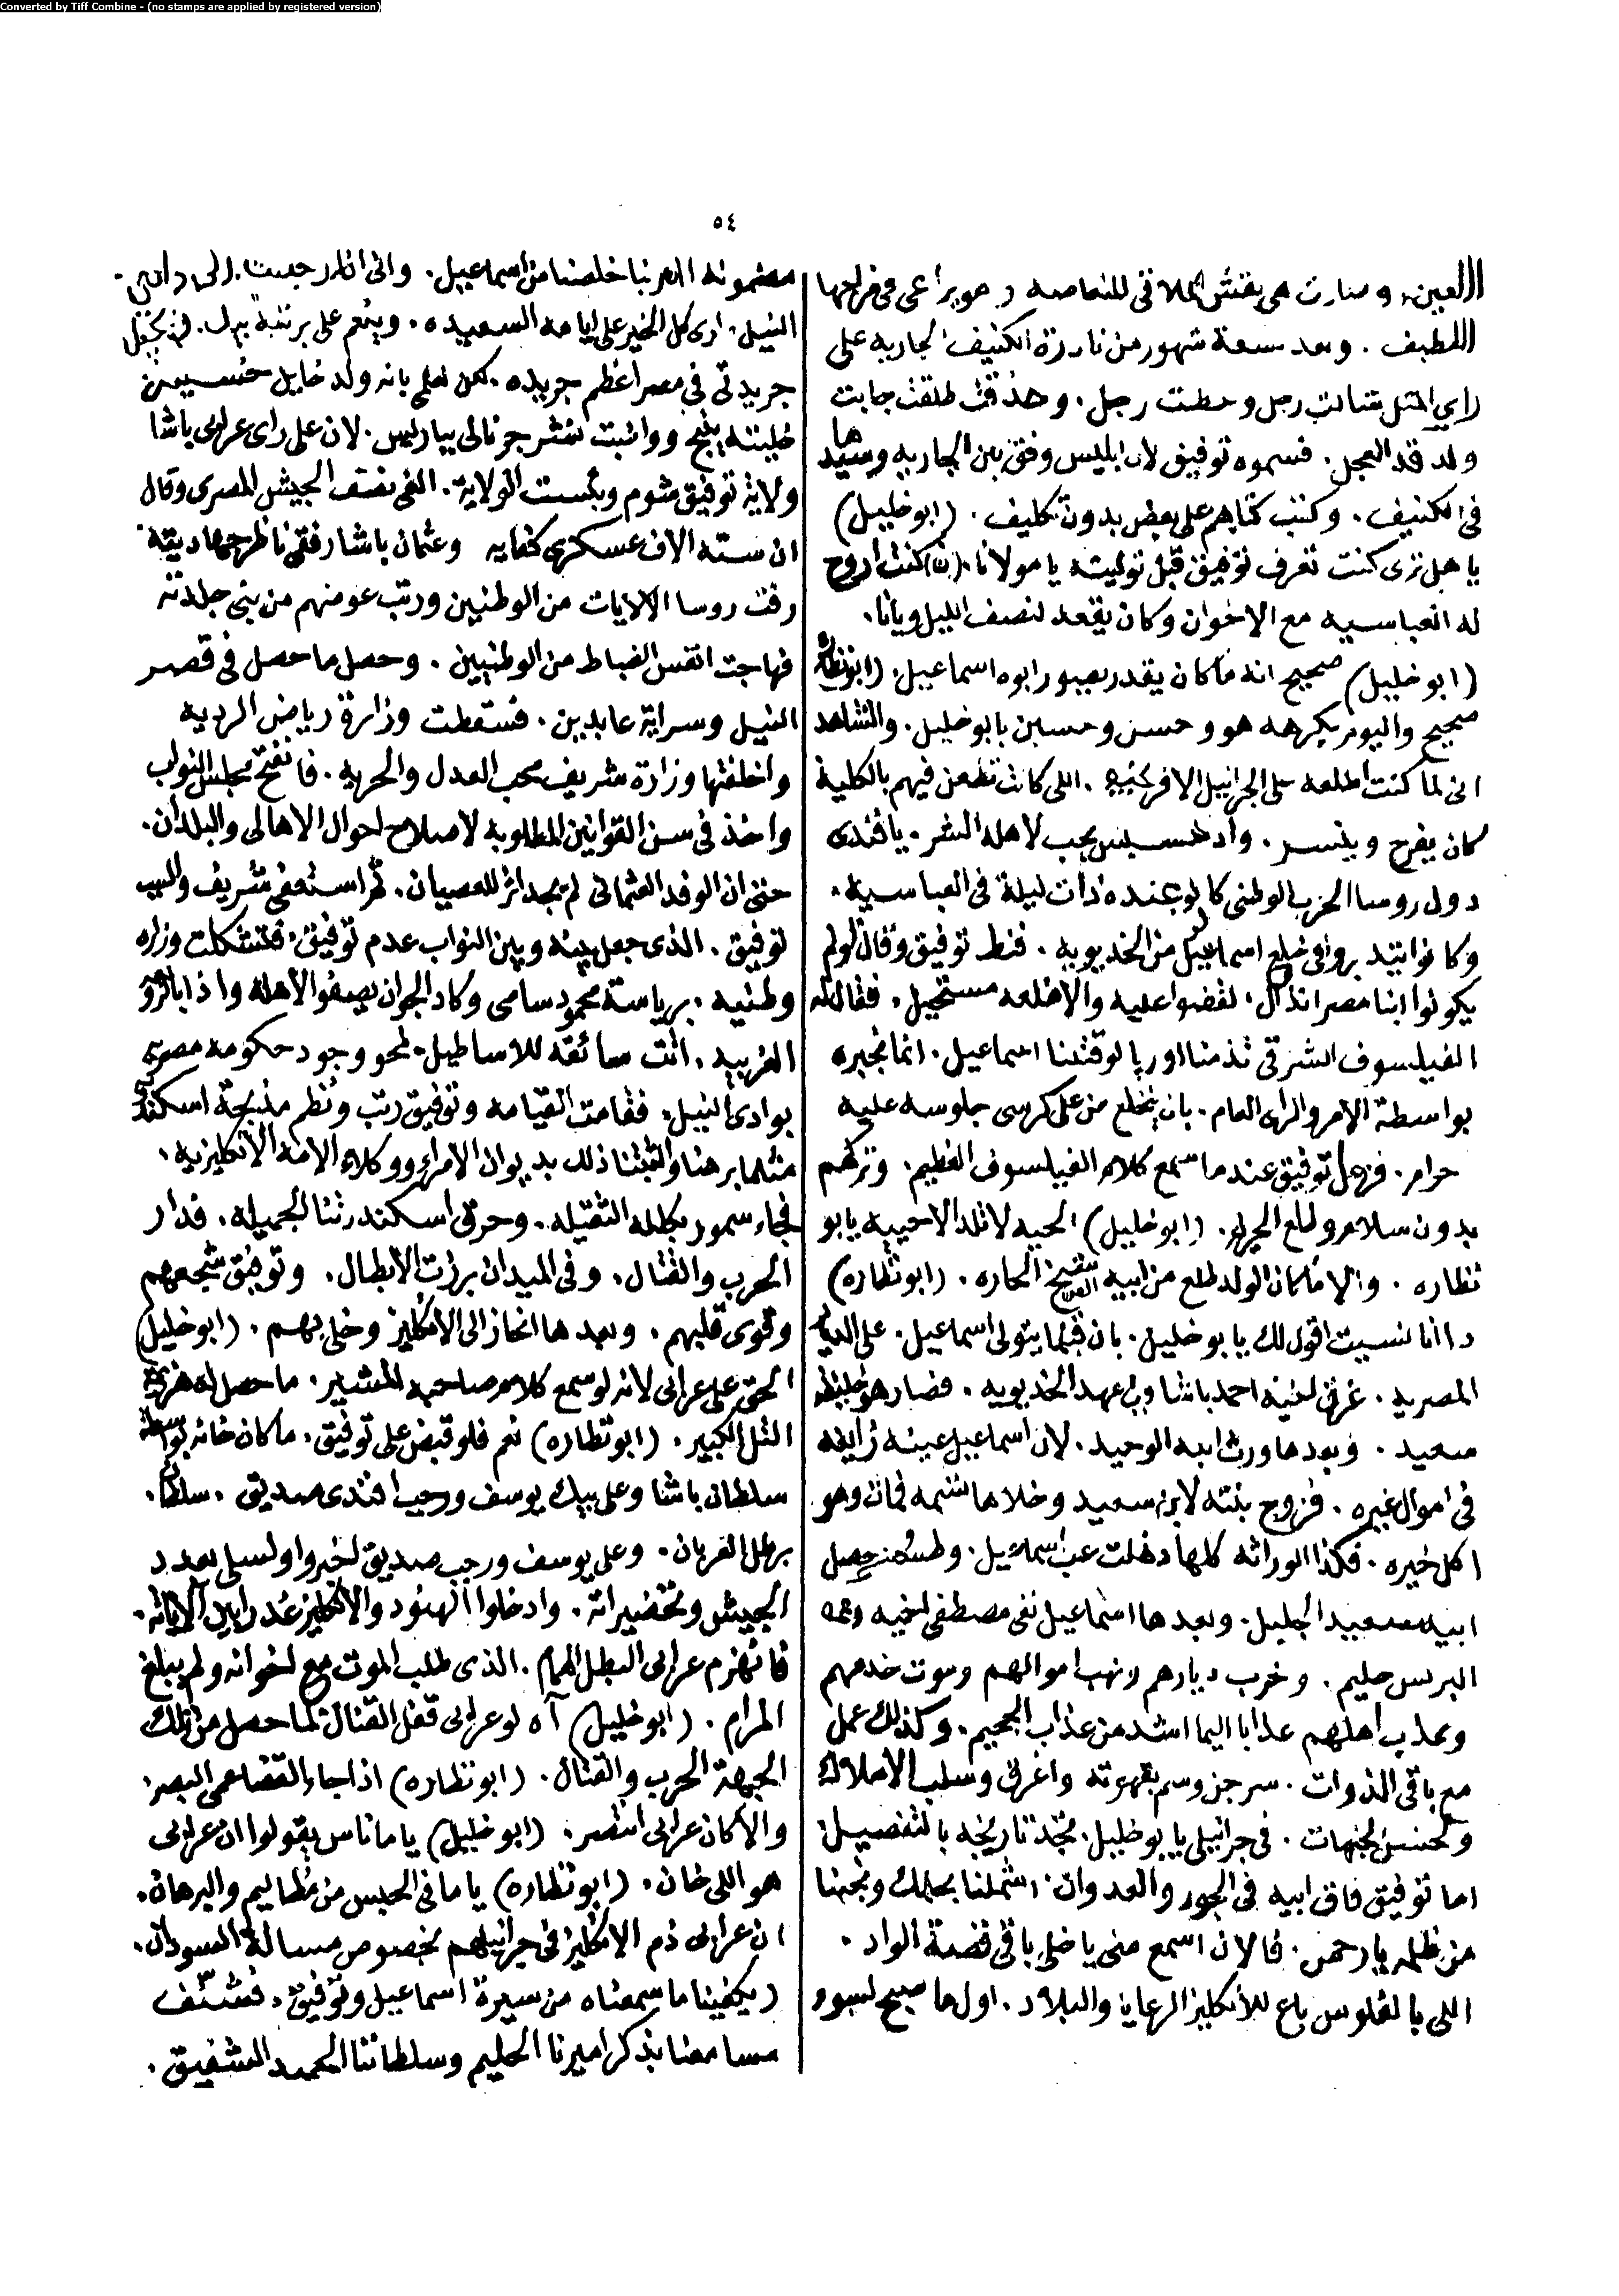 Converted by Tiff Combine - (no stamps are applied by registered version)
٥٤
اللعين، وصارت هى بقتش الملاقى للنعاصه و هو يراعى فى مزاجها
اللطيف. وبعد سعة شهور من نادرة الكنيف الجاريه على
راي المثل شالت رجل وحطت رجل. وحذقت طلقت جابت
ولد قد العجل. فسموه توفيق لان ابليس وفق بين الجاريه وسيدها
فى الكنيف. وكتب كتابهم على بعض بدون تكليف. (ابو خليل)
يا هل ترى كنت تعرف توفيق قبل توليته يا مولانا. (ن) كنت اروح
له العباسيه مع الاخوان وكان يقعد لنصف الليل ويانا.
(ابو خليل) صحيح انه ما كان يقدر بصبور ابوه اسماعيل. (ابو نظاره)
صحيح واليوم يكرهه هو وحسن وحسين يا بو خليل. والشاهد
انى لما كنت اطلعه على الجرانيل الافرنجيه. اللى كانت تطعن فيهم بالكلية
كان يفرح وينسر. واد خسيس يحب لاهله الشر. يا فندى
دول روسا الحزب الوطنى كانوا عنده ذات ليلة فى العباسيه.
وكانوا بيتدبروا فى خلع اسماعيل من الخديويه. فنط توفيق وقال لو لم
يكونوا ابنا مصر اندال. لقضوا عليه والا خلعه مستحيل. فقال له
الفيلسوف الشرقى تذمنا اوربا لو قتلنا اسماعيل. انما نجبره
بواسطة الامر والراى العام. بان ينخلع من على كرسى جلوسه عليه
حرام. فزعل توفيق عندما سمع كلام الفيلسوف العظيم. وتركهم
بدون سلام وطلع الحريم. (ابو خليل) الحيه لا تلد الا حييه يا بو
نظاره. والا ما كان الولد طلع من ابيه الحاره. (ابو نظاره)
دا انا نسيت اقول لك يا بو خليل. بان قبلما يتولى اسماعيل. على الديار
المصريه. غرق اخيه احمد باشا ولى عهد الخديويه. فصار هو خليفة
سعيد. وبعدها ورث ابنه الوحيد. لان اسماعيل عينه زايغه
فى اموال غيره. فزوج بنته لابن سعيد وخلاها تسمه فمات وهو
اكل خيره. فكذا الوراثه كلها دخلت عب اسماعيل. وطس
ابيه سعيد الجليل. وبعدها اسماعيل نفى مصطفى اخيه وعمه
البرنس حليم. وخرب ديارهم ونهب اموالهم وموت خدمهم
وعذب اهلهم عذابا اليما اشد من عذاب الجحيم. وكذلك عمل
مع باقى الذوات. سرجز وسم بقهوته واغرق وسلب الاملاك
فى جرانيلى يا بو خليل. تجد تاريخه بالتفصيل.
اما توفيق فاق ابيه فى الجور والعدوان. اشملنا بحلمك ونجنا
من ظلمه يا رحمن. فالان اسمع منى يا خلى باقى قصة الواد.
اللى بالفلوس باع للانكليز الرعايا والبلاد. اول ما صبح
مضمونه العر نبا خلصنا من اسماعيل. وانى انا رجعت الى وادى
النيل. ارى كل الخير على ايامه السعيده. وينعم على برتبة بيك.
جريدتى فى مصر اعظم جريده. لكن لعلمى بانه ولد خايل خسيس
خليته ينبح وواظبت نشر جرنالى بباريس. لان على راى عرابى باشا
ولاية توفيق مشوم وبئست الولايه. الغى نصف الجيش المصرى وقال
ان سته الاف عسكرى كفايه وعثمان باشا رفقى ناظر جهاديته
رفت روسا الالايات من الوطنيين ورتب عوضهم من بنى جلدته
فهاجت انفس الضباط من الوطنيين. وحصل ما حصل فى قصر
النيل وسراية عابدين. فسقطت وزارة رياض الرديه
واخلفتها وزارة شريف محب العدل والحريه. فانفتح مجلس النواب
واخذ فى سن القوانين المطلوبه لاصلاح احوال الاهالى والبلدان.
حتى ان الوفد العثمانى لم يجد اثر للعصيان. ثم استعفى شريف والسبب
توفيق. الذى جعل بينه وبين النواب عدم توفيق. فتشكلت وزاره
وطنيه. برياسة محمود سامى وكاد الجوان يصفو الاهله واذا بالدول
الغربيه. اتت سائقه للاساطيل. لمحو وجود حكومه مصريه
بوادى النيل. فقامت القيامه وتوفيق رتب ونظم مذبحة اسكندريه
مثلما برهنا واثبتنا ذلك بديوان الامراء ووكلاء الامة الانكليزيه.
فجاء سمور بكلله الثقيله. وحرق اسكندريتنا الجميله. فدار
الحرب والقتال. وفى الميدان برزت الابطال. وتوفيق شجعهم
وقوى قلبهم. وبعدها انحاز الى الانكليز وخلى بهم. (ابو خليل)
الحق على عرابى لانه لو سمع كلام صاحبه المشير. ما حصل له هزيمة
التل الكبير. (ابو نظاره) نعم فلو قبض على توفيق. ما كان خانه بواسطة
سلطان باشا وعلى بيك يوسف ورجب افندى صديق. سلطان
برطل العربان. وعلى يوسف ورجب صديق اخبروا ولسلى بعدد
الجيش وتحضيراته. وادخلوا الهنود والانكليز غدرا بين آلاياته.
فانهزم عرابى البطل الهمام. الذى طلب الموت مع اخوانه ولم يبلغ
المرام. (ابو خليل) آه لو عرابى قفل القنال لما حصل من تلك
الجهة الحرب والقتال. (ابو نظاره) اذا جاء القضا عمى البصر.
والا كان عرابى انتصر. (ابو خليل) ياما ناس يقولوا ان عرابى
هو اللى خان. (ابو نظاره) ياما فى الحبس من مظاليم والبرهان.
ان عرابى ذم الانكليز فى جرانيلهم بخصوص مسالة السودان.
ويكفينا ما سمعناه من سيرة اسماعيل وتوفيق. فشنف
مسامعنا بذكر اميرنا الحليم وسلطاننا الحميد الشفيق.